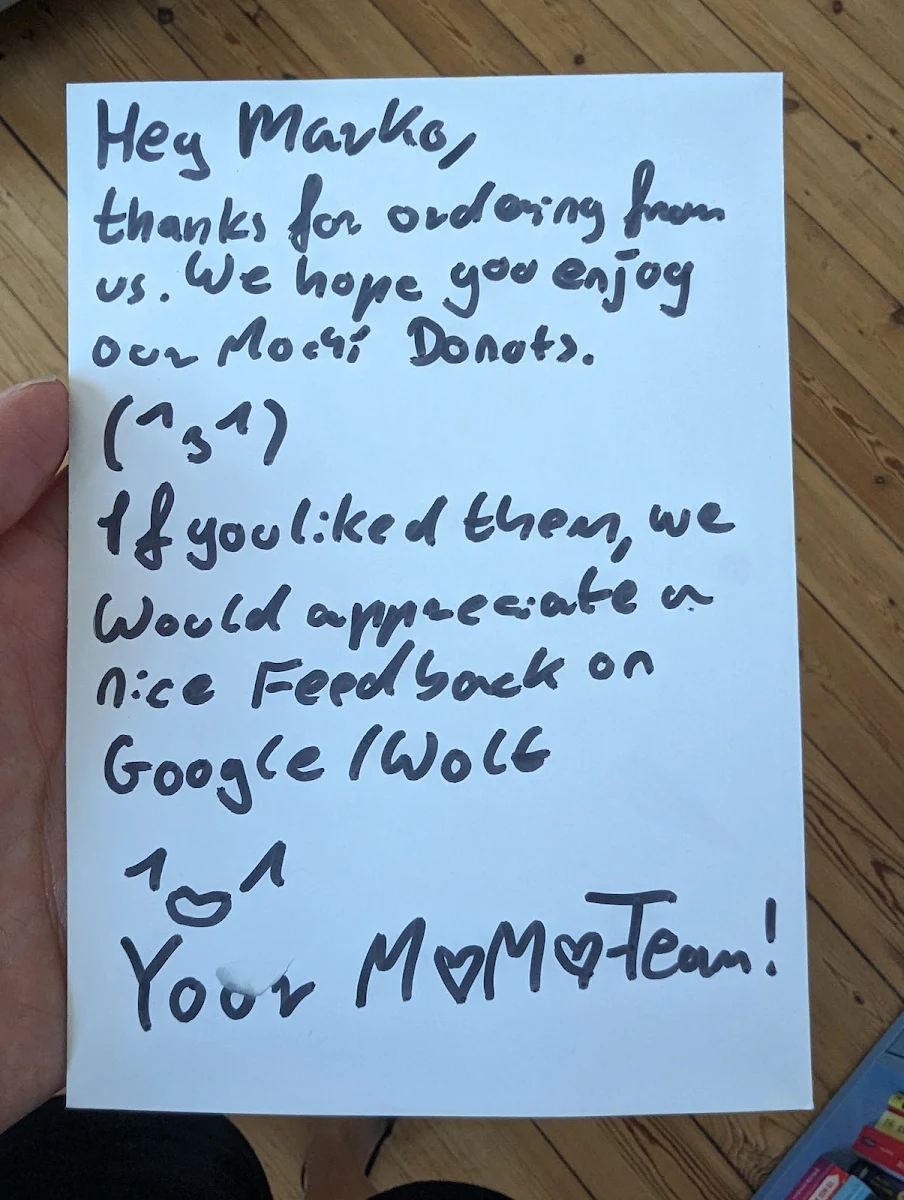 Hey Marko,
thanks for ordering from
us. We hope you enjoy
our Mochi Donots.
(^3^)
If you liked them, we
Would appreciate a
nice Feedback on
Google / Wolt
^ ^
Your M♡M♡-Team!